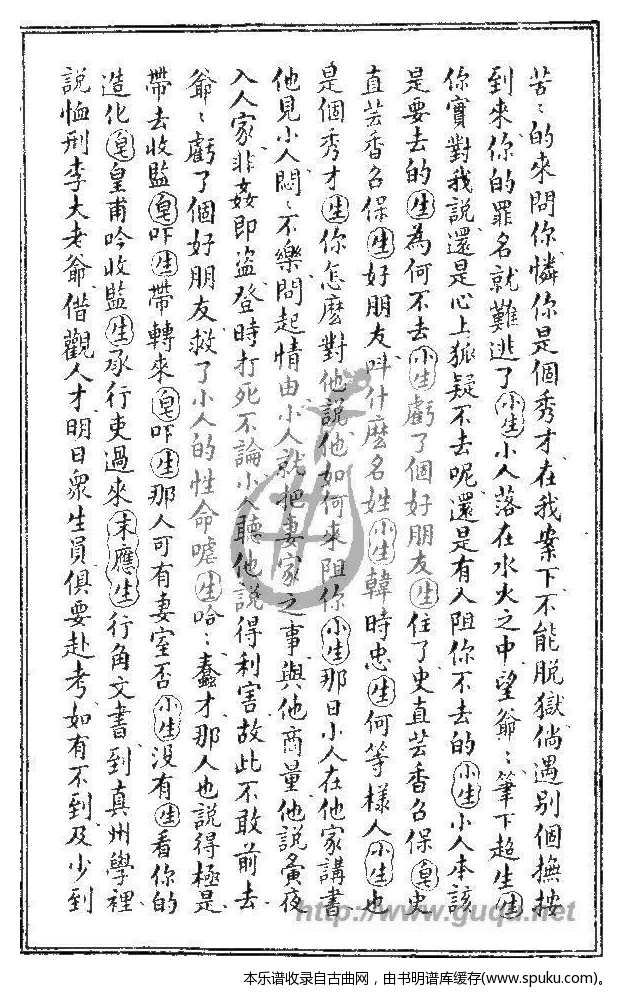 苦〻的來問你憐你是個秀才在我案下不能脱獄倘遇别個撫按
到來你的罪名就難逃了小生小人落在水火之中望爺〻筆下超生生
你實對我説還是心上狐疑不去呢還是有人阻你不去的小生小人本該
是要去的生為何不去小生虧了個好朋友生住了史直芸香名保皂史
直芸香名保生好朋友呌什麽名姓小生韓時忠生何等樣人小生也
是個秀才生你怎麽對他説他如何來阻你小生那日小人在他家講書
他見小人悶〻不樂問起情由小人就把妻家之事與他商量他説夤夜
入人家非姦即盗登時打死不論小人聽他説得利害故此不敢前去
爺〻虧了個好朋友救了小人的性命嘘生哈〻蠢才那人也説得極是
帶去收監皂吓生帶轉來皂吓生那人可有妻室否小生没有生看你的
造化皂皇甫吟收監生承行吏過來末應生行角文書到真州學裡
説恤刑李大老爺借觀人才明日衆生員俱要赴考如有不到及少到
http://www.guqu.net
本乐谱收录自古曲网，由书明谱库缓存(www.spuku.com)。